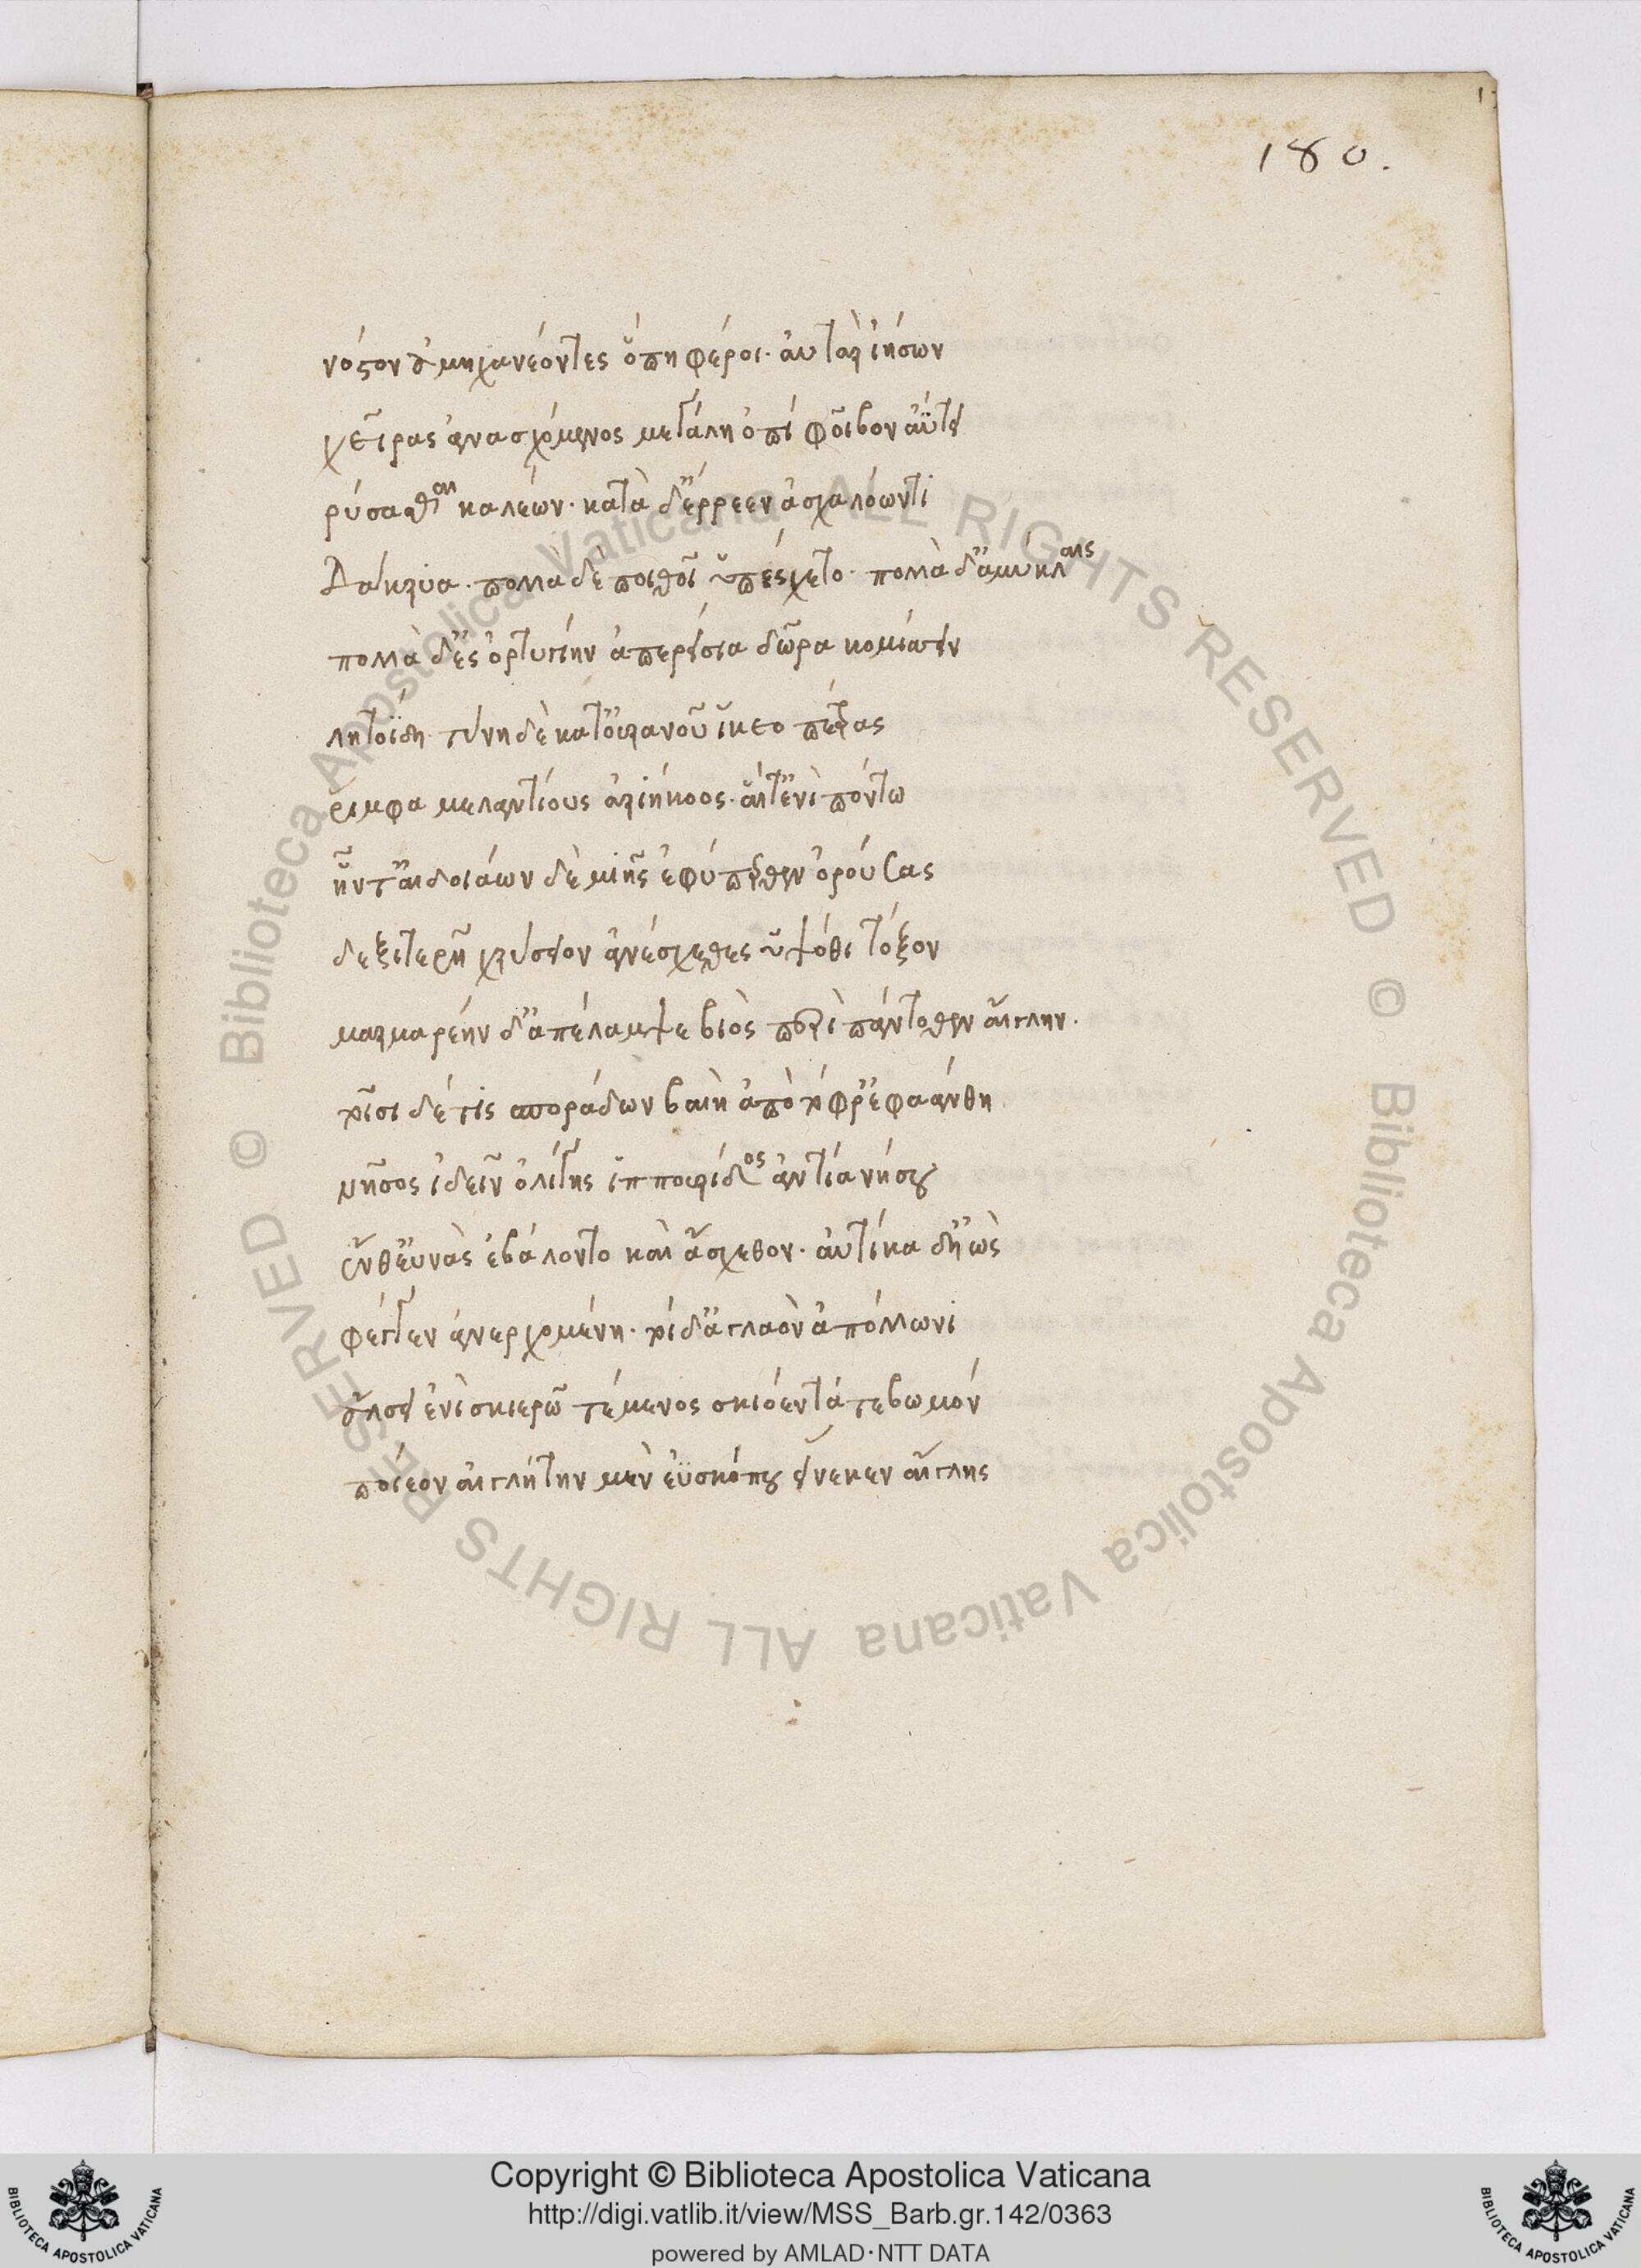 180.
νόστον ἀμηχανέοντες ὅπη φέροι· αὐτὰρ ἰήσων
χεῖρας ἀνασχόμενος μεγάλη ὀπὶ φοῖβον ἀΰτει
ῥύσασθαι καλέων· κατὰ δ' ἔρρεεν ἀσχαλόωντι
Δάκρυα· πολλὰ δὲ πυθοῖ ὑπέσχετο· πολλὰ δ' ἀμύκλαις
πολλὰ δ' ἐς ὀρτυγίην ἀπερείσια δῶρα κομίσσειν
λητοΐδη τύνη δὲ κατ' οὐρανοῦ ἵκεο πέτρας
ῥίμφα μελαντίους ἀριήκοος· αἵ τ' ἐνὶ πόντω
ἧντ' αι δοιάων δὲ μιῆς ἐφύπερθεν ὀρούσας
δεξιτερῆ χρύσειον ἀνέσχεθες ὑψόθι τόξον
μαρμαρέην δ' ἀπέλαμψε βιὸς περὶ πάντοθεν αἴγλην·
τοῖσι δέ τις σποράδων βαιὴ ἀπὸ τόφρ' ἐφαάνθη
νῆσος ἰδεῖν ὀλίγης ἱππουρίδος ἀντία νήσου
ἔνθ' εὐνὰς ἐβάλοντο καὶ ἔσχεθον· αὐτίκα δ' ἠὼς
φέγγεν ἀνερχομένη· τοὶ δ' ἀγλαὸν ἀπόλλωνι
ἄλσει ἐνὶ σκιερῶ τέμενος σκιόεντά τε βωμόν
ποίεον αἰγλήτην μὲν ἐϋσκόπου εἵνεκεν αἴγλης
© Biblioteca Apostolica Vaticana ALL RIGHTS RESERVED © Biblioteca Apostolica Vaticana ALL RIGHTS RESERVED
BIBLIOTECA APOSTOLICA VATICANA
Copyright © Biblioteca Apostolica Vaticana
http://digi.vatlib.it/view/MSS_Barb.gr.142/0363
powered by AMLAD·NTT DATA
BIBLIOTECA APOSTOLICA VATICANA